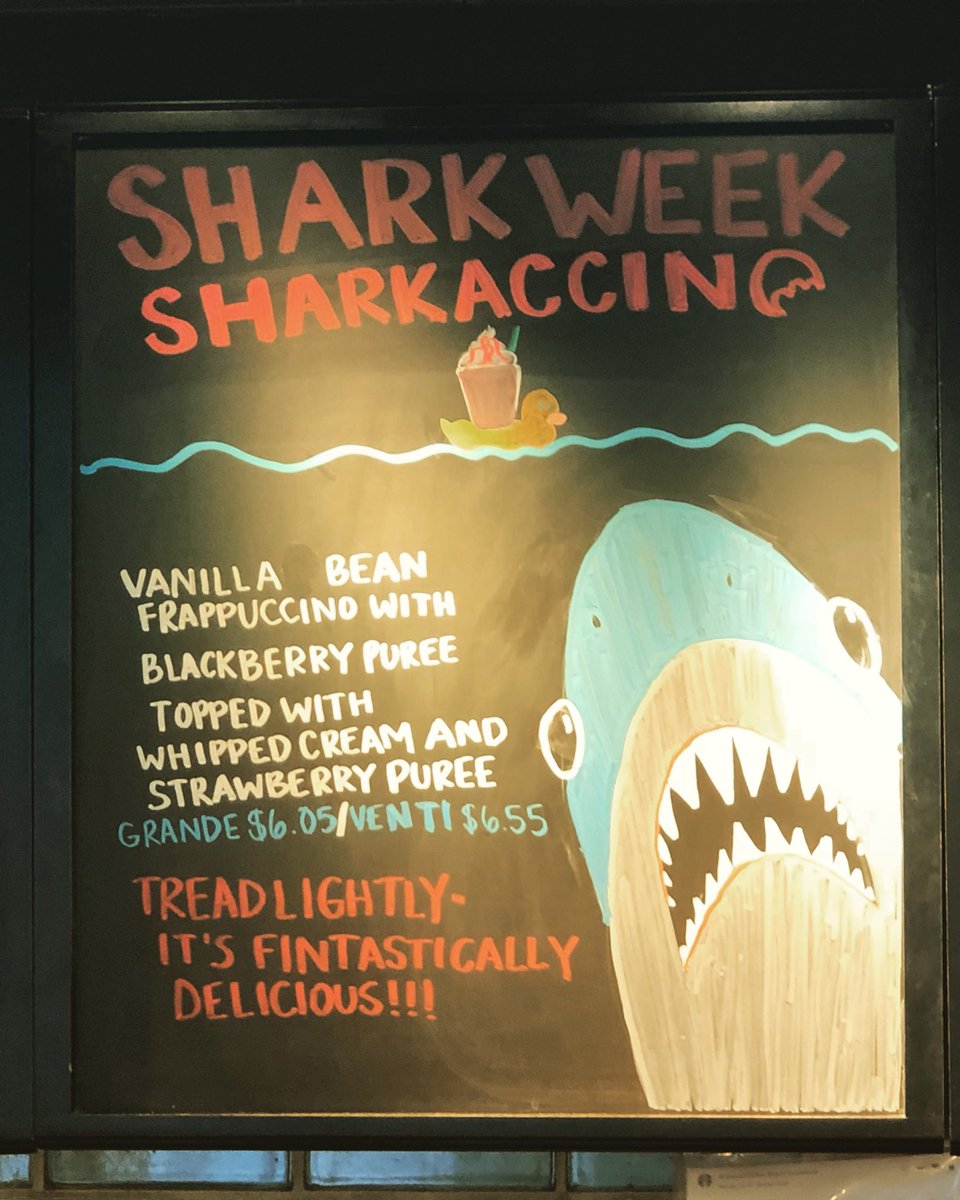 SHARK WEEK
SHARKACCINO
VANILLA BEAN
FRAPPUCCINO WITH
BLACKBERRY PUREE
TOPPED WITH
WHIPPED CREAM AND
STRAWBERRY PUREE
GRANDE $6.05/VENTI $6.55
TREAD LIGHTLY-
IT'S FINTASTICALLY
DELICIOUS!!!